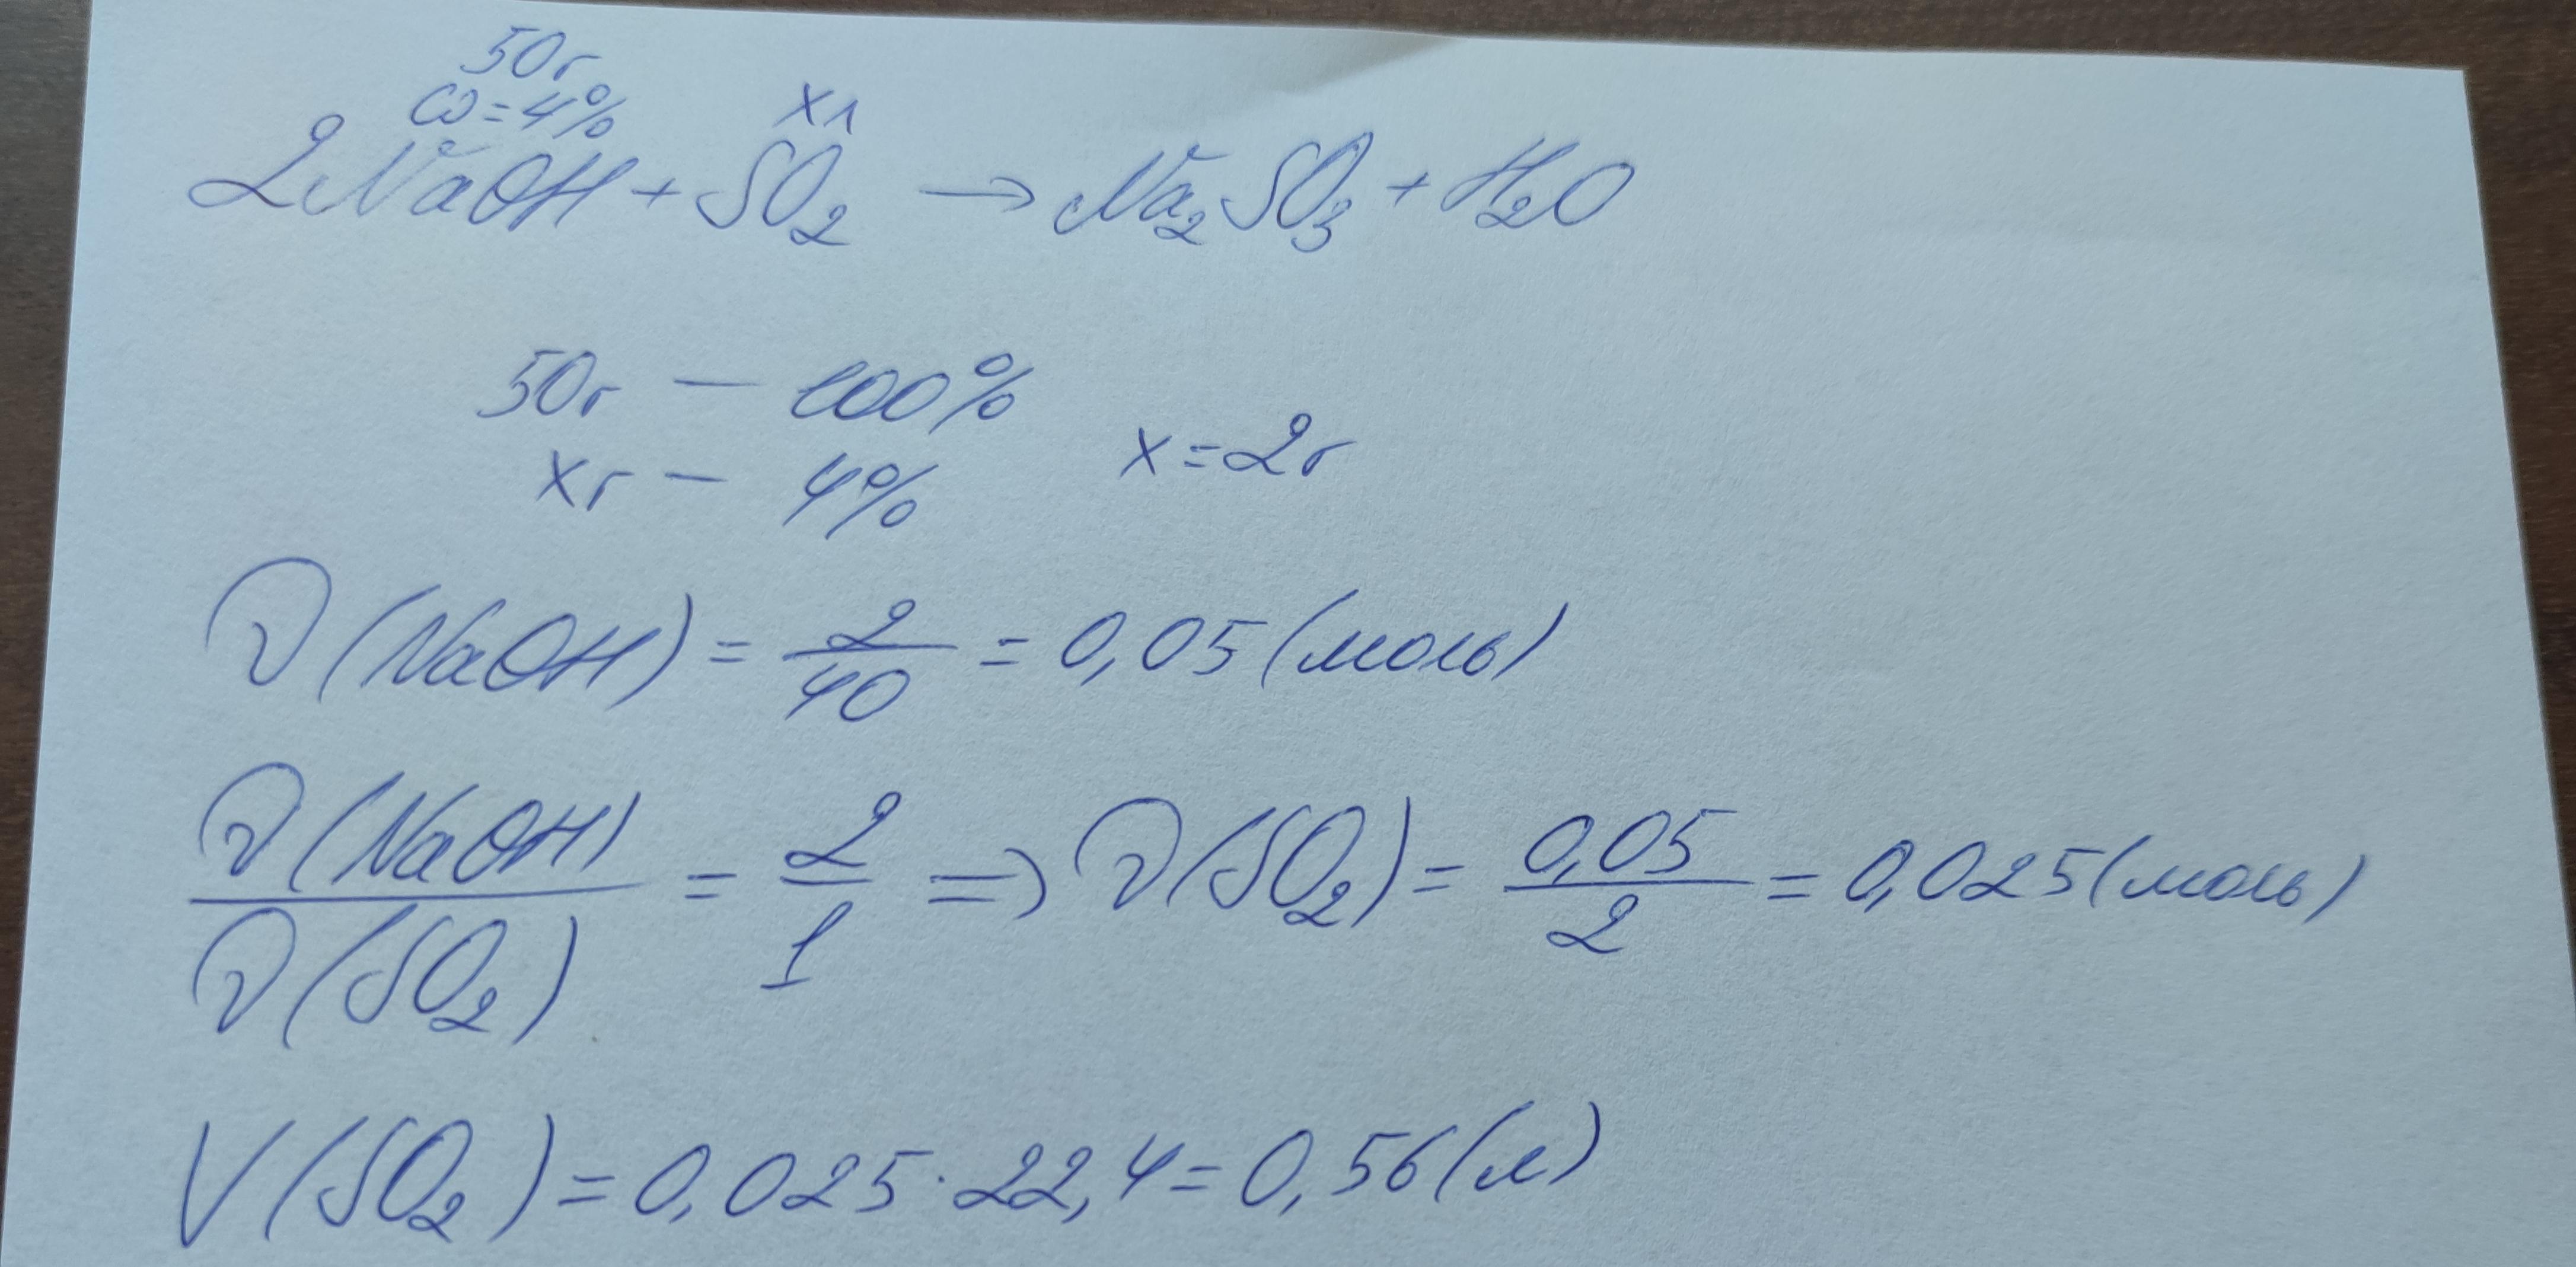 50г
ω=4% хл
2NaOH + SO₂ → Na₂SO₃ + H₂O
50г — 100%
хг — 4% х=2г
ν(NaOH) = 2/40 = 0,05 (моль)
ν(NaOH)/ν(SO₂) = 2/1 => ν(SO₂) = 0,05/2 = 0,025 (моль)
V(SO₂) = 0,025·22,4 = 0,56 (л)